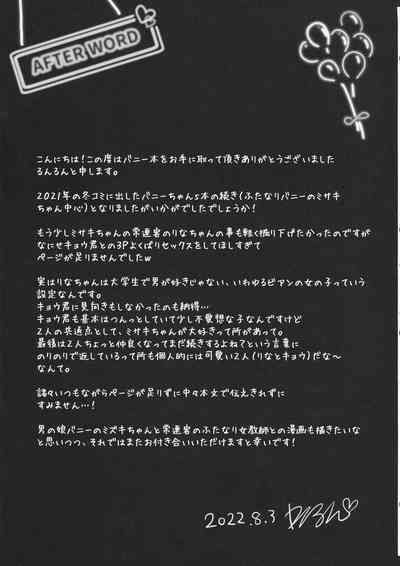 AFTER WORD
こんにちは!この度はバニー本をお手に取って頂きありがとうございました
るんるんと申します。
2021年の冬コミに出したバニーちゃんs本の続き(ふたなりバニーのミサキ
ちゃん中心)となりましたがいかがでしたでしょうか!
もう少しミサキちゃんの常連客のりなちゃんの事も軽く掘り下げたかったのですが
なにせキョウ君との3Pよくばりセックスをしてほしすぎて
ページが足りませんでしたw
実はりなちゃんは大学生で男が好きじゃない、いわゆるビアンの女の子っていう
設定なんです。
キョウ君に見向きもしなかったのも納得…
キョウ君も基本はつんっとしていて少し不愛想な子なんですけど
2人の共通点として、ミサキちゃんが大好きって所があって。
最後は2人ちょっと仲良くなってまだ続きするよね?という言葉に
のりのりで返しているって所も個人的には可愛い2人(りなとキョウ)だな~
なんて。
諸々いつもながらページが足りずに中々本文で伝えきれずに
すみません…!
男の娘バニーのミズキちゃんと常連客のふたなり女教師との漫画も描きたいな
と思いつつ、それではまたお付き合いいただけますと幸いです!
2022.8.3